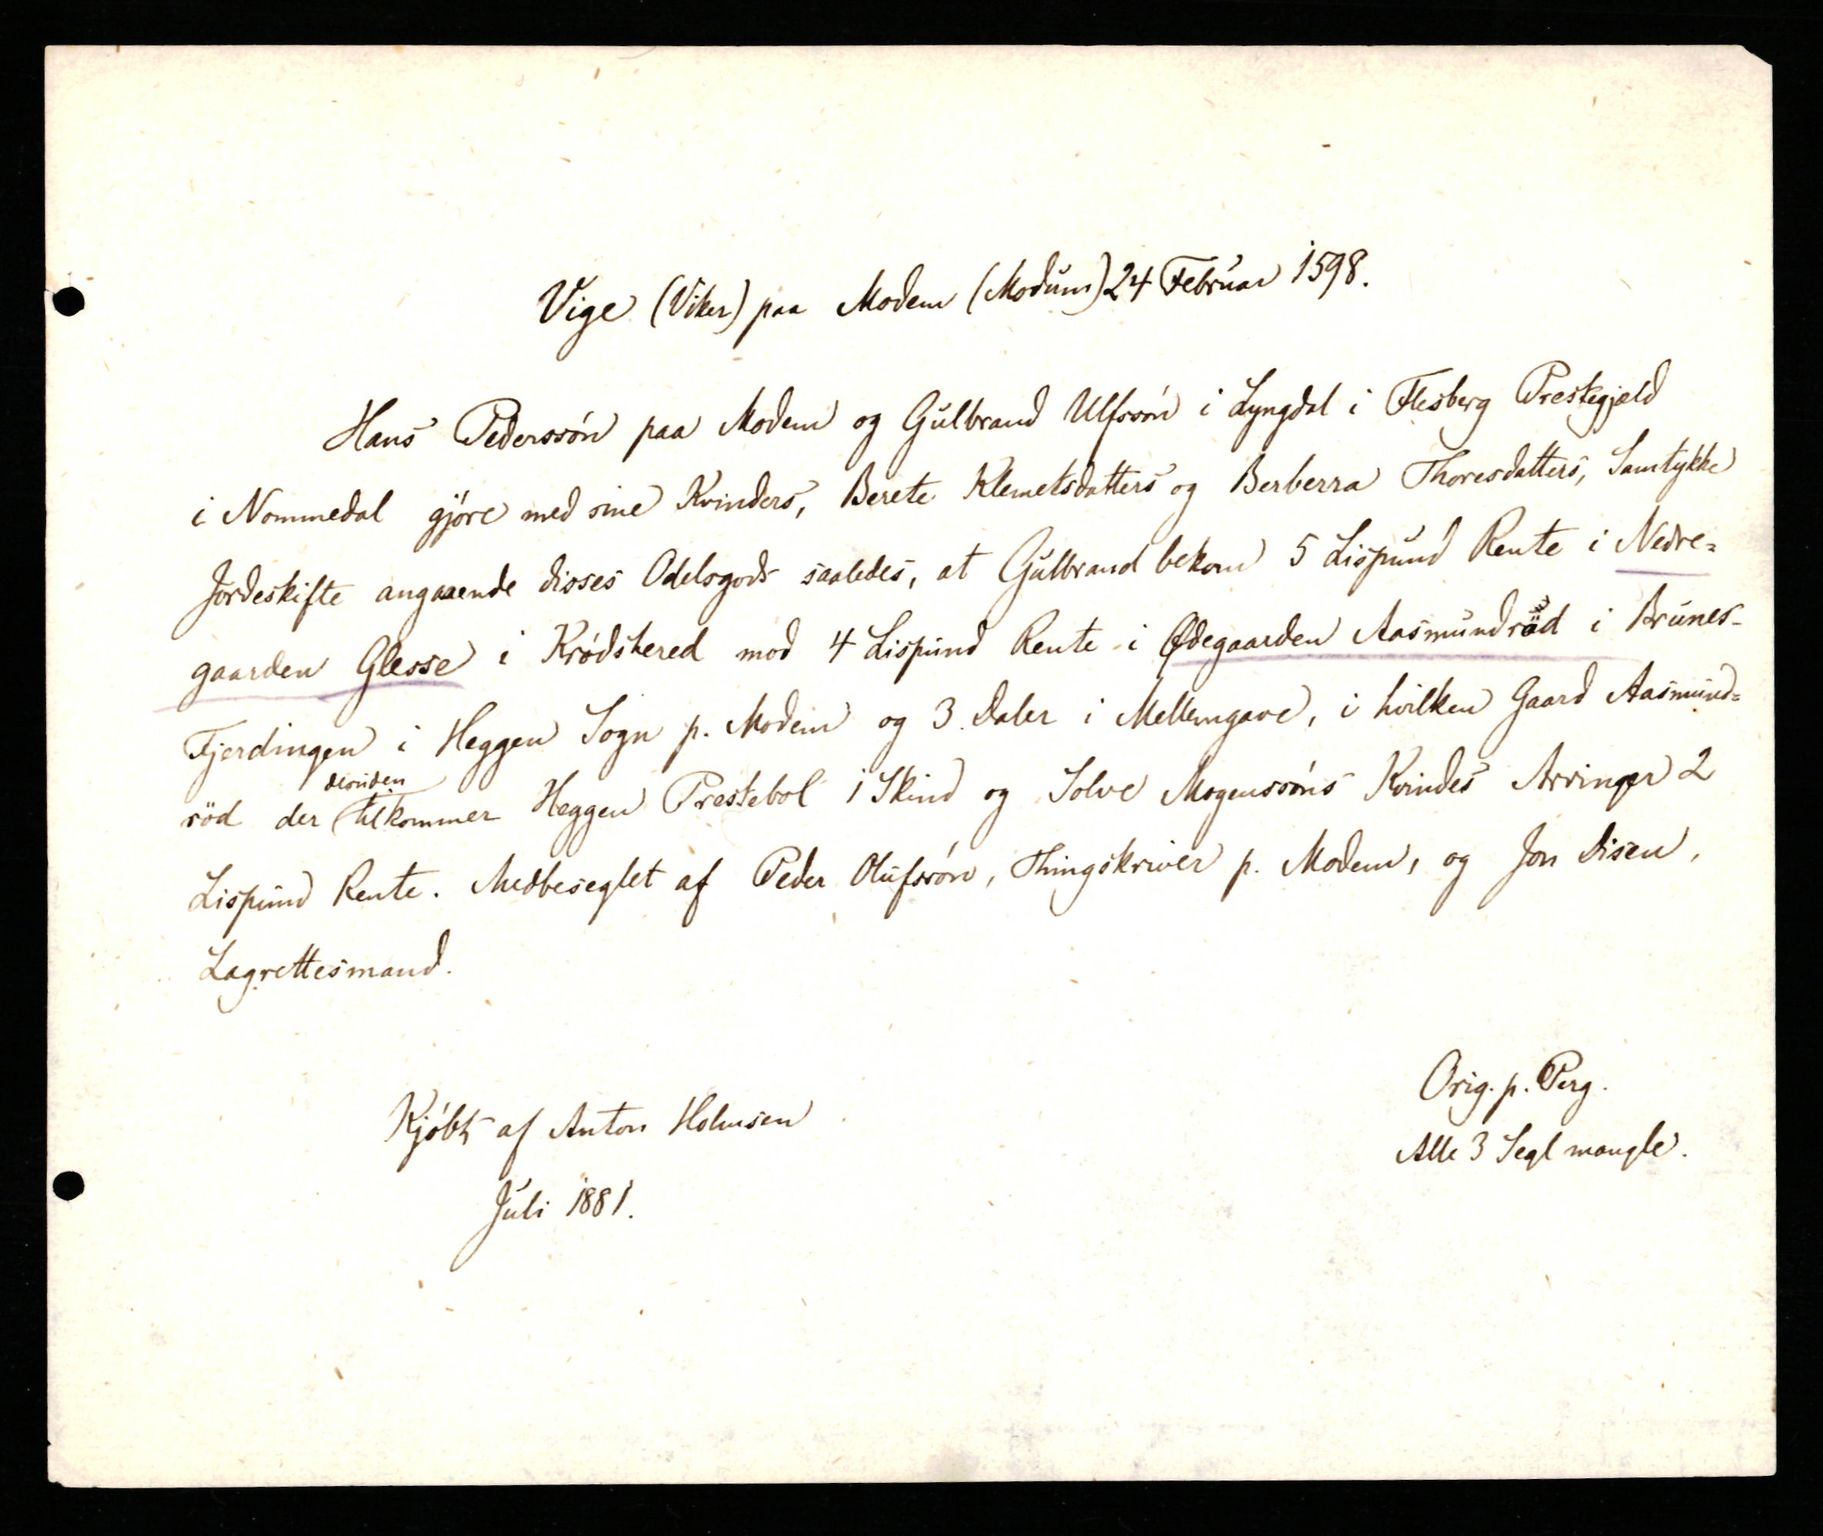 Vige (Viker) paa Modem (Modum) 24 Februar 1598.
Hans Pederssön paa Modem og Gulbrand Ulfssön i Lyngdal i Flesberg Prestegjeld
i Nommedal gjöre med sine Kvinders, Berete Klemetsdatters og Berberra Thoresdatters, Samtykke
Jordeskifte angaaende disses Odelsgods saaledes, at Gulbrand bekom 5 Lispund Rente i Nedre-
gaarden Glesse i Krødshered mod 4 Lispund Rente i Ødegaarden Aasmundröd i Brunes-
Fjerdingen i Heggen Sogn p. Modem og 3 Daler i Mellemgave, i hvilken Gaard Aasmund-
desuden
röd der tilkommer Heggen Prestebol 1 Skind og Solve Mogenssöns Kvindes Arvinger 2
Lispund Rente. Medbeseglet af Peder Olufssön, Thingskriver p. Modem, og Jon Disen,
Lagrettesmand.
Orig. p. Perg.
Alle 3 Segl mangle.
Kjöbt af Anton Holmsen
Juli 1881.